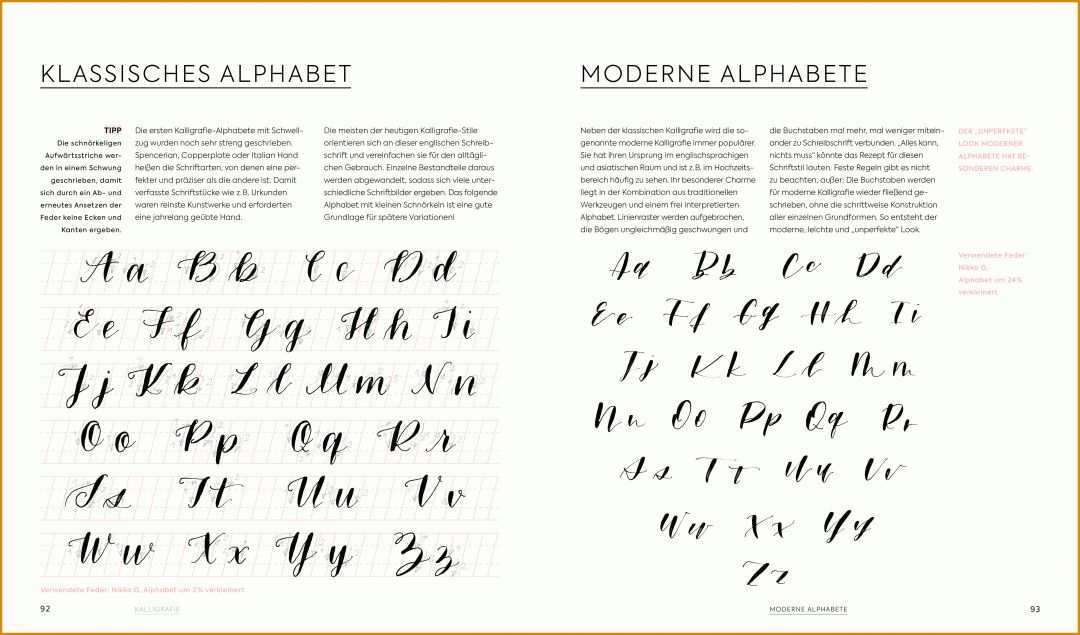 KLASSISCHES ALPHABET
TIPP
Die schnörkeligen
Aufwärtsstriche wer-
den in einem Schwung
geschrieben, damit
sich durch ein Ab- und
erneutes Ansetzen der
Feder keine Ecken und
Kanten ergeben.
Die ersten Kalligrafie-Alphabete mit Schwell-
zug wurden noch sehr streng geschrieben.
Spencerian, Copperplate oder Italian Hand
heißen die Schriftarten, von denen eine per-
fekter und präziser als die andere ist. Damit
verfasste Schriftstücke wie z. B. Urkunden
waren reinste Kunstwerke und erforderten
eine jahrelang geübte Hand.
Die meisten der heutigen Kalligrafie-Stile
orientieren sich an dieser englischen Schreib-
schrift und vereinfachen sie für den alltägli-
chen Gebrauch. Einzelne Bestandteile daraus
werden abgewandelt, sodass sich viele unter-
schiedliche Schriftbilder ergeben. Das folgende
Alphabet mit kleinen Schnörkeln ist eine gute
Grundlage für spätere Variationen!
A a B b C c D d
E e F f G g H h I i
J j K k L l M m N n
O o P p Q q R r
S s T t U u V v
W w X x Y y Z z
Verwendete Feder: Nikko G, Alphabet um 2% verkleinert
92
KALLIGRAFIE
MODERNE ALPHABETE
Neben der klassischen Kalligrafie wird die so-
genannte moderne Kalligrafie immer populärer.
Sie hat ihren Ursprung im englischsprachigen
und asiatischen Raum und ist z. B. im Hochzeits-
bereich häufig zu sehen. Ihr besonderer Charme
liegt in der Kombination aus traditionellen
Werkzeugen und einem frei interpretierten
Alphabet. Linienraster werden aufgebrochen,
die Bögen ungleichmäßig geschwungen und
die Buchstaben mal mehr, mal weniger mitein-
ander zu Schreibschrift verbunden. „Alles kann,
nichts muss“ könnte das Rezept für diesen
Schriftstil lauten. Feste Regeln gibt es nicht
zu beachten, außer: Die Buchstaben werden
für moderne Kalligrafie wieder fließend ge-
schrieben, ohne die schrittweise Konstruktion
aller einzelnen Grundformen. So entsteht der
moderne, leichte und „unperfekte“ Look.
DER „UNPERFEKTE“
LOOK MODERNER
ALPHABETE HAT BE-
SONDEREN CHARME.
Verwendete Feder:
Nikko G,
Alphabet um 24%
verkleinert
Aa Bb Cc Dd
Ee Ff Gg Hh Ii
Jj Kk Ll Mm
Nn Oo Pp Qq Rr
Ss Tt Uu Vv
Ww Xx Yy
Zz
MODERNE ALPHABETE
93